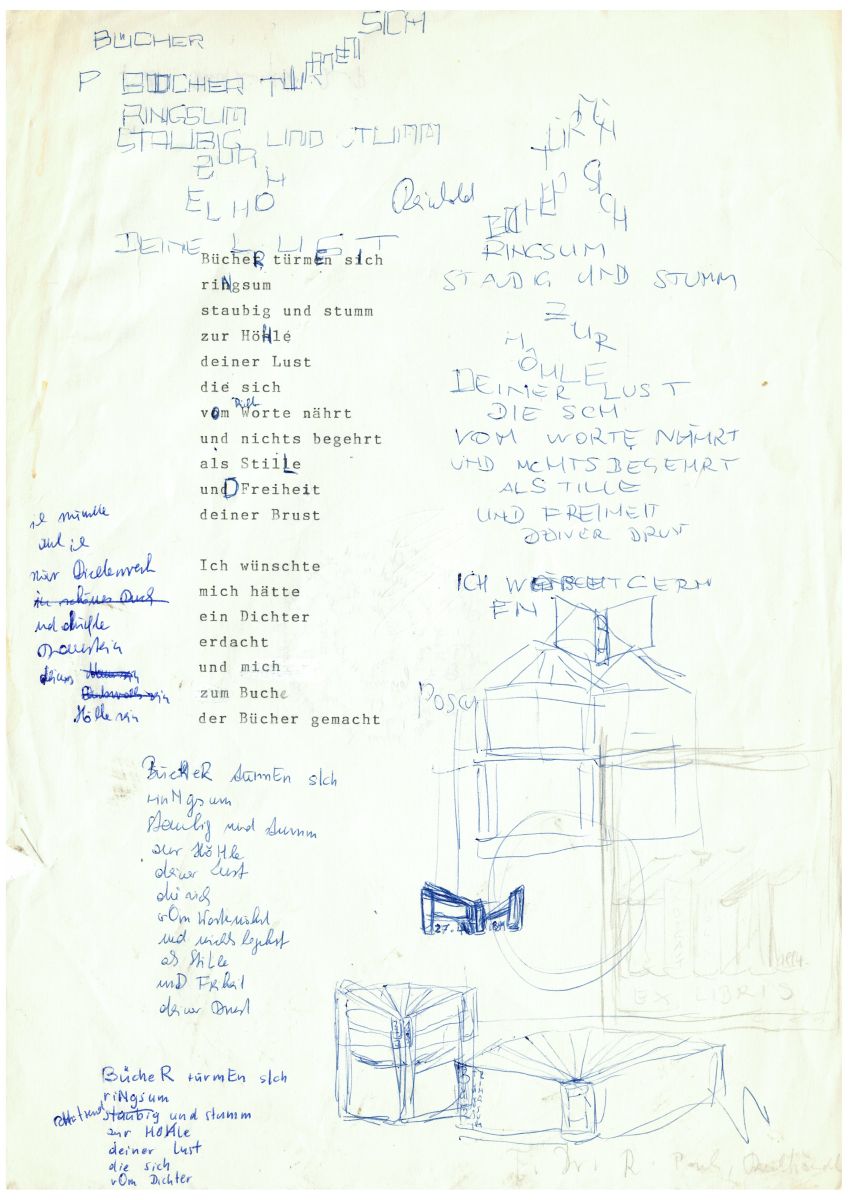 SICH
BÜCHER
P BÜCHER TÜRMEN
RINGSUM
STAUBIG UND STUMM
ZUR
HÖHLE
Reinhold
DEINE LUST
BücheR türmen sich
riNgsum
staubig und stumm
zur HöHle
deiner Lust
die sich
vOm Worte nährt
und nichts begehrt
als StilLe
unD Freiheit
deiner Brust
Ich wünschte
mich hätte
ein Dichter
erdacht
und mich
zum Buche
der Bücher gemacht
TÜRMEN
BÜCHER SICH
RINGSUM
STAUBIG UND STUMM
ZUR
HÖHLE
DEINER LUST
DIE SICH
VOM WORTE NÄHRT
UND NICHTS BEGEHRT
ALS STILLE
UND FREIHEIT
DEINER BRUST
ICH GERN
EN
Höhle sein
BücHeR türmEn sIch
rinNgsum
staubig und stumm
zur HöHle
deiner Lust
die sich
vOm Worte nährt
und nichts begehrt
als StiLle
unD Freiheit
deiner Brust
27.
EX LIBRIS
BücheR türmEn sIch
riNgsum
staubig und stumm
zur HöHle
deiner Lust
die sich
vOm Dichter